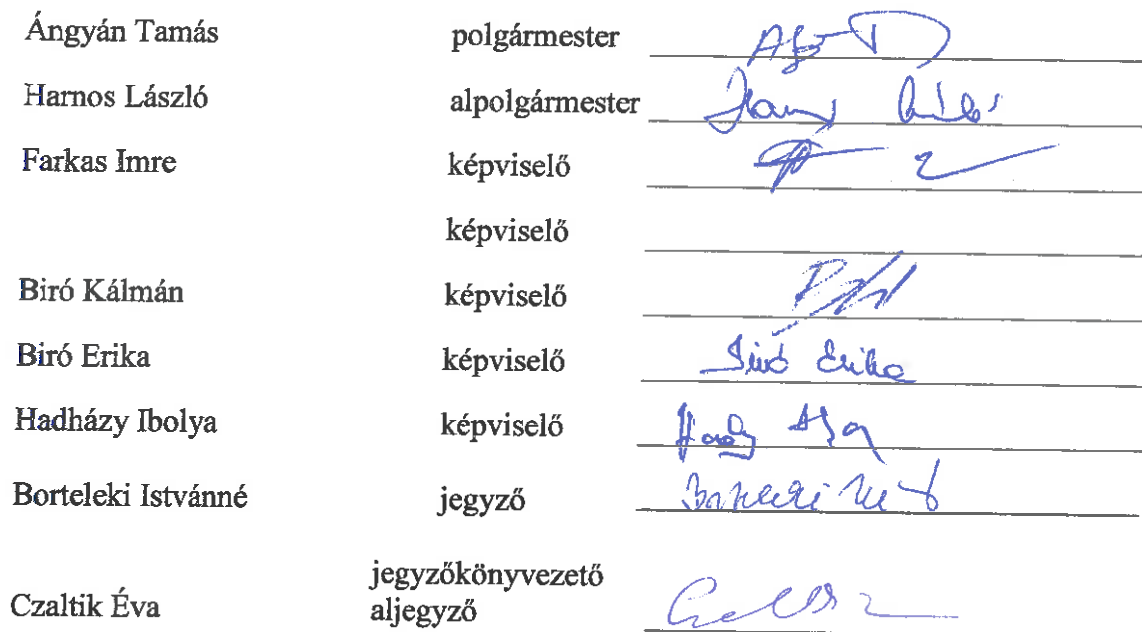 Ángyán Tamás polgármester
Harnos László alpolgármester
Farkas Imre képviselő
képviselő
Biró Kálmán képviselő
Biró Erika képviselő Biró Erika
Hadházy Ibolya képviselő
Borteleki Istvánné jegyző
jegyzőkönyvezető
Czaltik Éva aljegyző